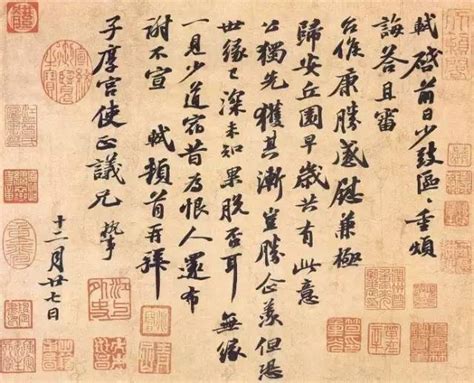 軾啓前日少致區區重煩
誨答且審
台候康勝感慰兼極
歸安丘園早歲共有此意
公獨先獲其漸豈勝企羨但恐
世緣已深未知果脫否耳無緣
一見少道宿昔為恨人還布
謝不宣 軾頓首再拜
子厚宮使正議兄 執事
十二月廿七日